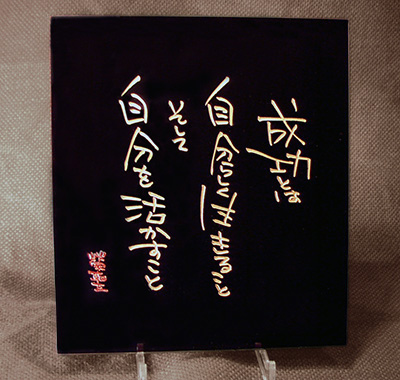 成功とは
自分らしく生きること
そして
自分を活かすこと